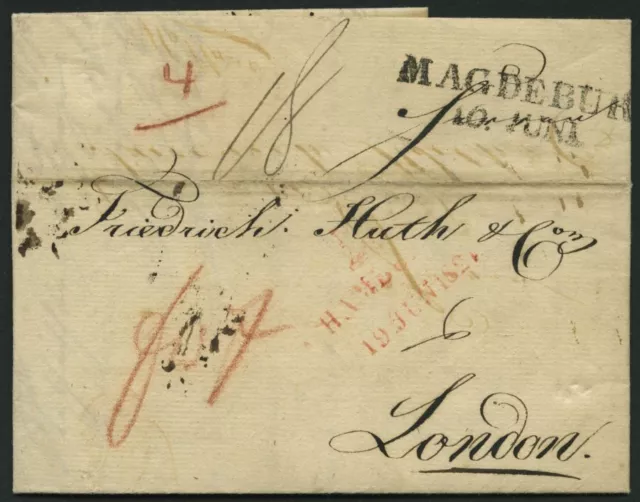 4
118
MAGDEBUR
10. JUNI
Friedrich. Huth & Con
HAMB
19 JUNI 182
London.